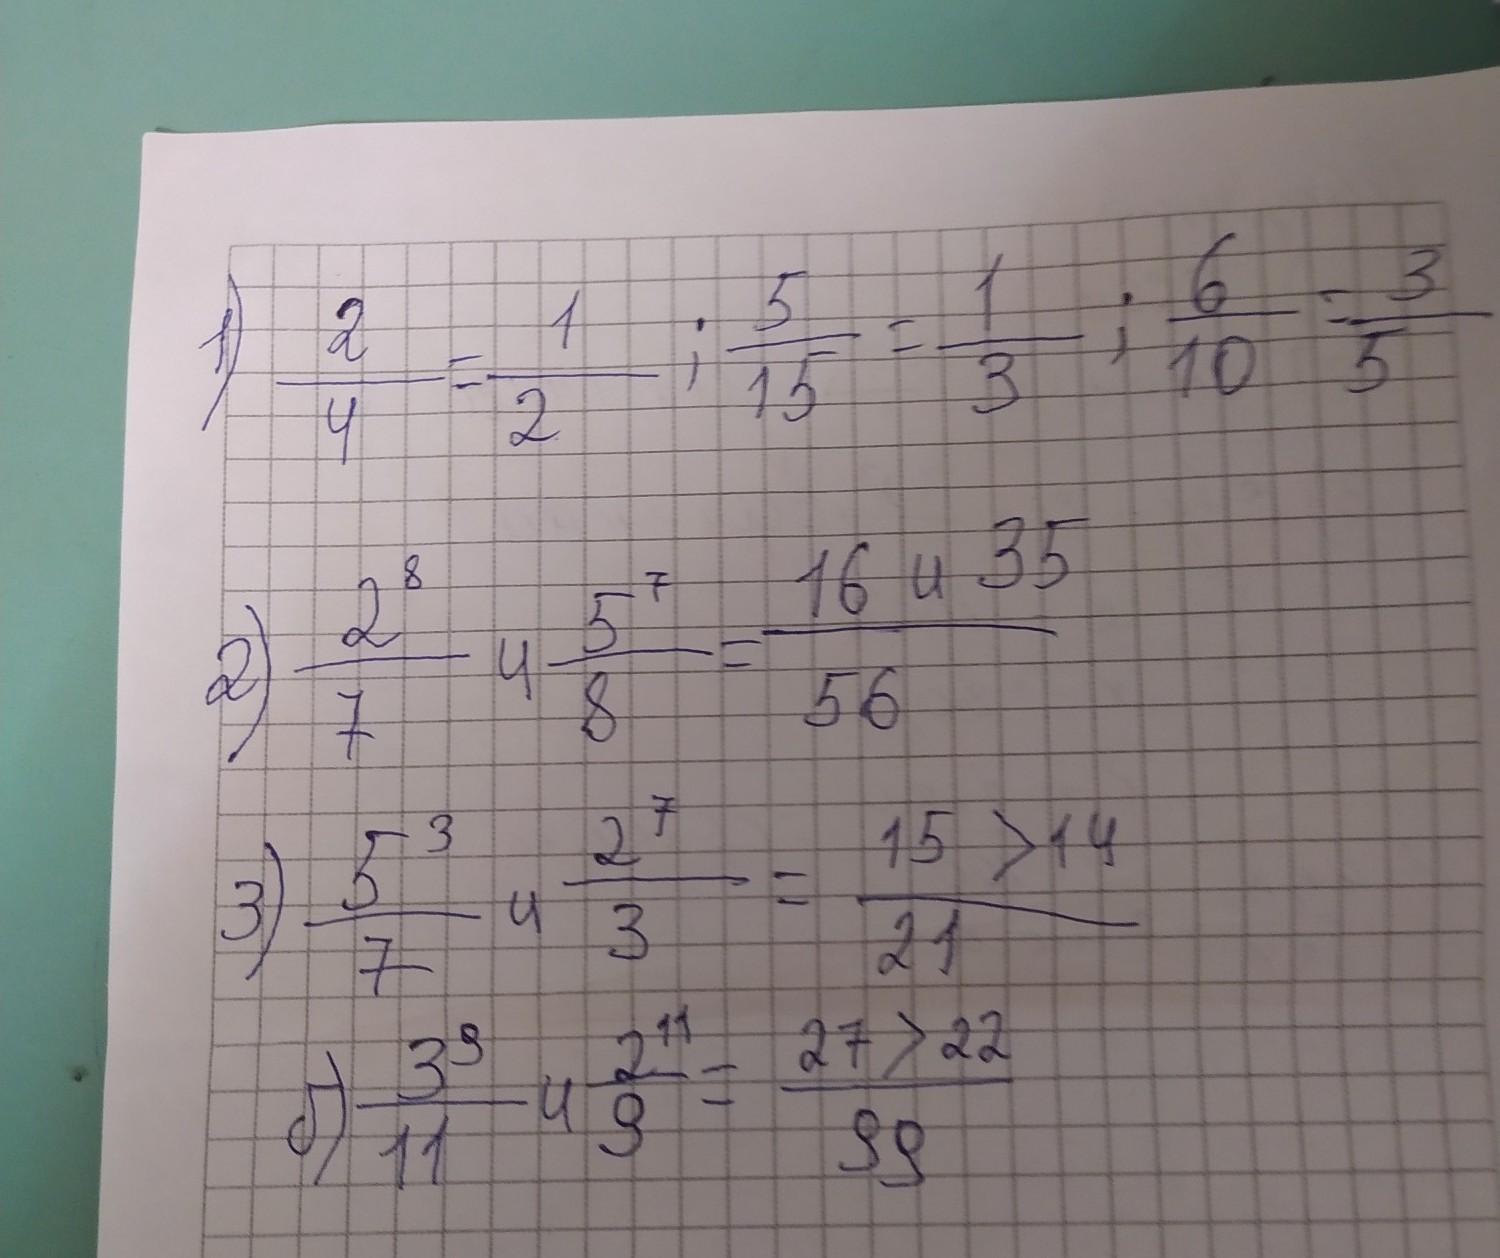 1) 2/4 = 1/2 ; 5/15 = 1/3 ; 6/10 = 3/5
2) 2⁸/7 и 5⁷/8 = 16 и 35/56
3) 5³/7 и 2⁷/3 = 15 > 14/21
б) 3⁹/11 и 2¹¹/9 = 27 > 22/99